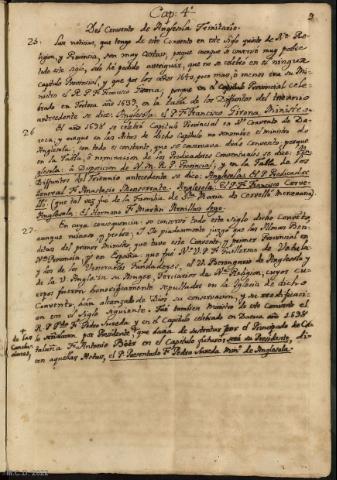 Cap: 4º
Del Convento de Anglesola Trinitario.
25. Las noticias, que tengo de este Convento en este siglo quinto de Nra Re-
ligion, y Provincia, son muy cortas, porque aunque se conservó muy poble
todo este siglo, solo hé podido averiguar, que no se celebró en el ninguna
Capitulo Provincial, y que por los años 1640, poco mas, ó menos era su Mi-
nistro el R. P. F. Francisco Girona, porque en el Capitulo Provincial cele-
brado en Tortosa año 1633, en la tabla de los Difuntos del trienio
antecedente se dice: Anglesola: el P. F. Francisco Girona Ministro.
26. El año 1636 se celebró Capitulo Provincial en Nro Convento de Da-
roca, y aunque en las Actas de dicho Capitulo no nombre el ministro de
Anglesola, con todo es constante, que se conservava dicho Convento, porque
en la Tabla, ó nominacion de los Predicadores Conventuales se dice: An-
glesola: á Disposicion de N. M. R. P. Provincial; y en la Tabla de los
Difuntos del Trienio antecedente se dice: Anglesola: el P. Predicador
General F. Anastasio Monserrate. Anglesola: El P. F. Francisco Corve-
lla: (que tal vez fue de la Familia de Sta Maria de Corvella Mercenaria)
Anglesola: el Hermano F. Martin Renilles lego.
27. En cuya consequencia se conservó todo este Siglo dicho Convento,
aunque minoro, y pobre: y Se piadosamente juzgo que las Almas Ben-
ditas del primer Ministro, que tuvo este Convento, y primer Provincial en
Nra Provincia, y en España: que fue Nro V. P. F. Guillermo de Vedela
y los de los Venerables Fundadores, el V. Berenguer de Anglesola, y
de la V. Anglesia su Muger, Terciarios de Nra Religion, cuyos cu-
erpos fueron honorificamente sepultados en la Iglesia de dicho
Convento, aun alcanzó de Dios su conservacion, y su reedificaci-
on en el Siglo siguiente. Fue tambien Ministro de este Convento el
R. P. Pdo F. Pedro Sureda y en el Capitulo celebrado en Daroca año 1636
lo señalaron en Presidente + que havia de sustentar por el Principado de Cata-
luña F. Antonio Bóer en el Capitulo futuro: será su Presidente, di-
cen aquellas Notas, el P. Presentado F. Pedro Sureda Minro de Anglesola.
+ de las
Conclu-
siones,